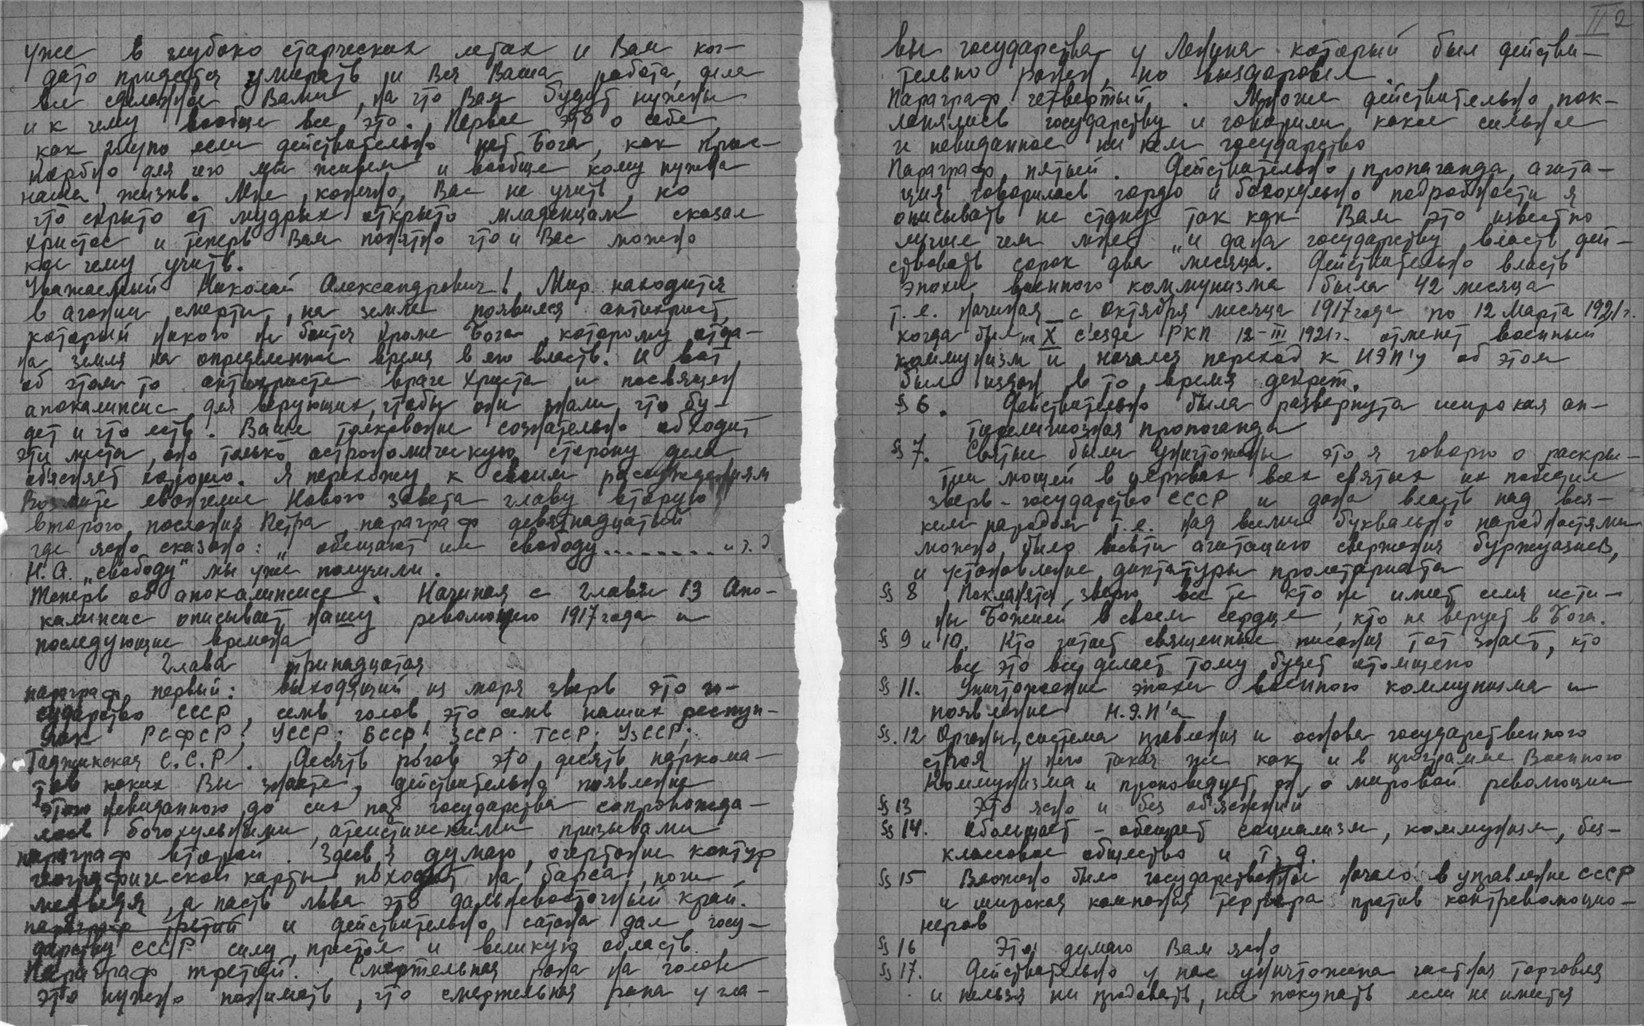 уже в глубоко старческих летах и Вам ког-
дато придется умереть и вся Ваша работа, дела
вы сделанные Вами, на что Вам будут нужны
и к чему вообще все это. Первое это о себе
как глупо если действительно нет Бога, как прис-
корбно для чего мы живем и вообще кому нужна
наша жизнь. Мне, конечно, Вас не учить, но
что скрыто от мудрых открыто младенцам сказал
Христос и теперь Вам понятно что и Вас можно
кое чему учить.
Уважаемый Николай Александрович! Мир находится
в агонии смерти, на земле появился антихрист,
который никого не боится кроме Бога, которому отда-
на земля на определенное время в его власть. И вот
об этом то антихристе враге Христа и посвящен
апокалипсис для верующих, чтобы они знали, что бу-
дет и что есть. Ваше толкование сознательно обходит
эти места, оно только астрономическую сторону дела
объясняет хорошо. Я перехожу к своим рассуждениям
Возьмите евангелие Нового завета главу вторую
второго послания Петра, параграф девятнадцатый
где ясно сказано: „обещают им свободу........ и т.д
Н.А. „свободу" мы уже получили.
Теперь об апокалипсисе. Начиная с главы 13 Апо-
калипсис описывает нашу революцию 1917 года и
последующие времена
Глава тринадцатая
параграф первый: выходящий из моря зверь это го-
сударство СССР, семь голов, это семь наших респуб-
лик РСФСР, УССР. БССР. ЗССР. ТССР. УзССР.
Таджикская С.С.Р. Десять рогов это десять наркома-
тов каких Вы знаете, действительно появление
этого невиданного до сих пор государства сопровожда-
лось богохульными, атеистическими призывами
параграф второй. Здесь я думаю, очертание контур
географической карты походят на барса, ноги
медведя, а пасть льва это дальневосточный край.
параграф третий и действительно сатана дал госу-
дарству СССР силу, престол и великую область.
Параграф третий. Смертельная рана на голове
это нужно понимать, что смертельная рана у гла-
II 2
вы государства у Ленина который был действи-
тельно ранен, но выздоровел.
Параграф четвертый. Многие действительно пок-
лонялись государству и говорили какое сильное
и невиданное ни кем государство
Параграф пятый. Действительно, пропаганда, агита-
ция говорилась гордо и богохульно подробности я
описывать не стану так как Вам это известно
лучше чем мне, „и дана государству власть дей-
ствовать сорок два месяца. Действительно власть
эпохи военного коммунизма была 42 месяца
т.е. начиная с октября месяца 1917 года по 12 марта 1921г.
когда был на X съезде РКП 12-III 1921г. отменен военный
коммунизм и начался переход к НЭП'у об этом
был издан в то время декрет.
§ 6. Действительно была развернута широкая ан-
тирелигиозная пропаганда
§ 7. Святые были уничтожены это я говорю о раскры-
тии мощей в церквах всех святых их победил
зверь-государство СССР и дана власть над вся-
ким народом т.е. над всеми буквально народностями
можно было вести агитацию свержения буржуазиев,
и установление диктатуры пролетариата
§ 8 Поклонятся зверю все те кто не имеет семя исти-
ны Божией в своем сердце, кто не верует в Бога.
§ 9 и 10. Кто читает священные писания тот знает, кто
все это все делает тому будет отомщено
§ 11. Уничтожение эпохи военного коммунизма и
появление Н.Э.П'а
§. 12 Органы, система правления и основа государственного
строя у него такая же как и в программе Военного
Коммунизма и проповедует он о мировой революции
§ 13 Это ясно и без объяснений
§ 14. Обольщает - обещает социализм, коммунизм, без-
классовое общество и т.д.
§ 15 Вложено было государственное начало в управление СССР
и широкая кампания террора против контрреволюцио-
неров
§ 16 Это думаю Вам ясно
§ 17. Действительно у нас уничтожена частная торговля
и нельзя ни продавать, ни покупать если не имеется